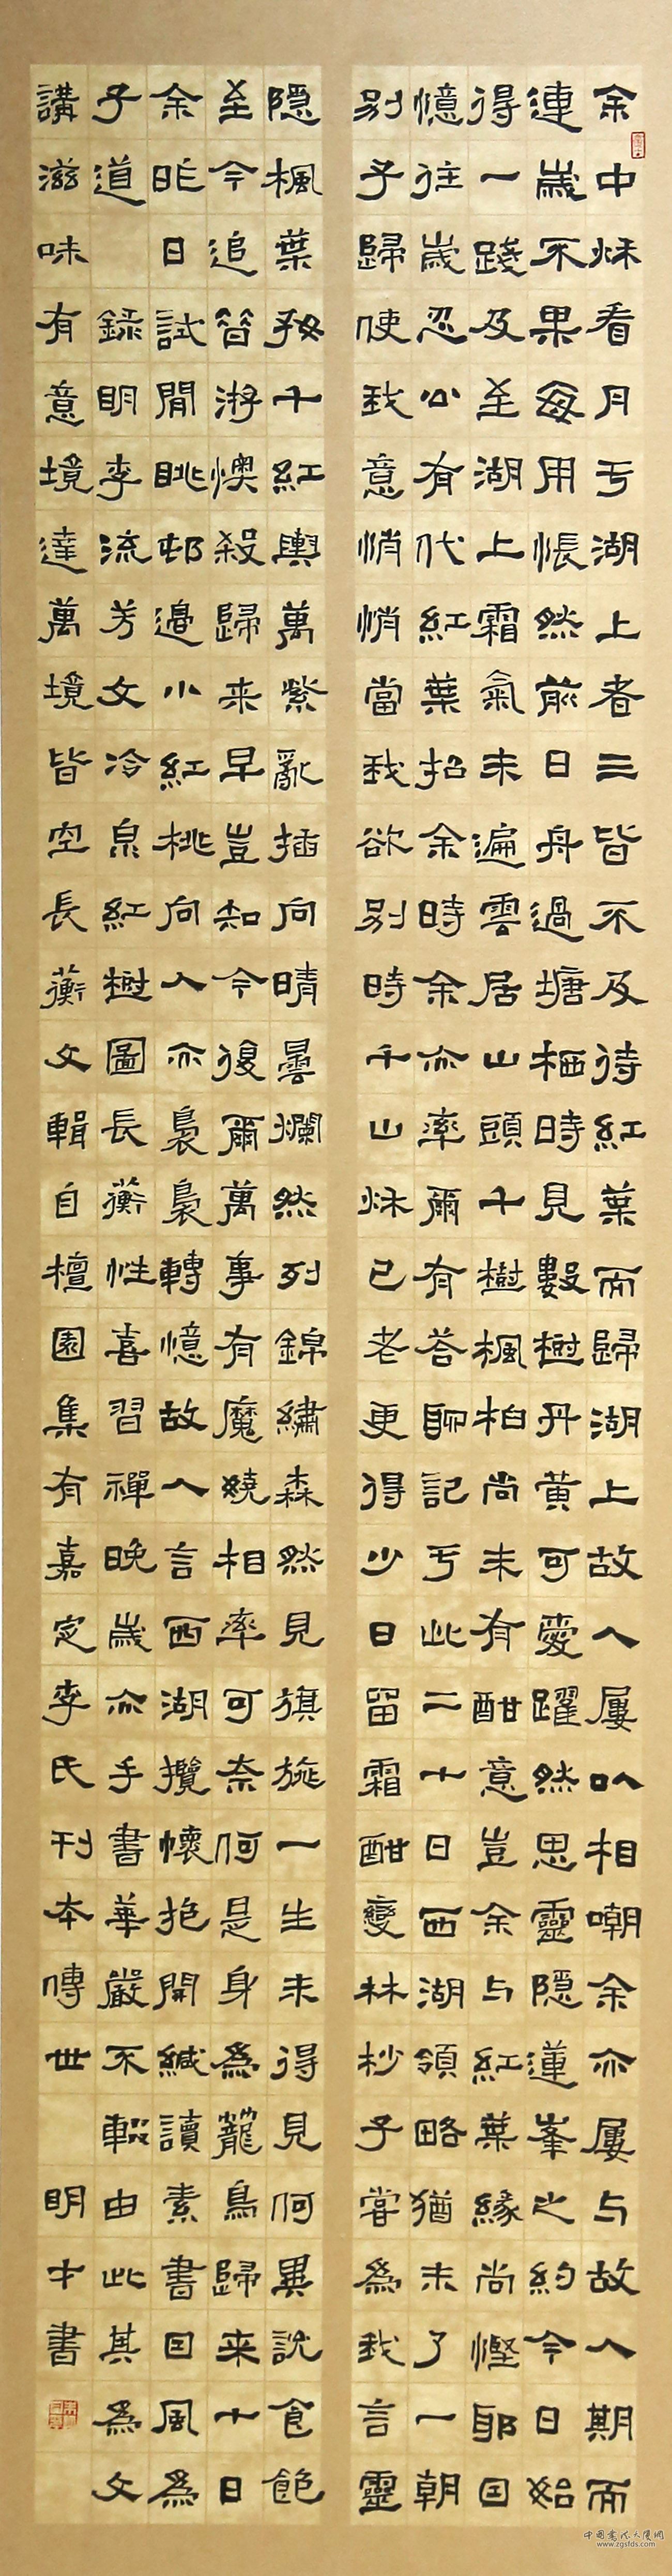 余中秋看月于湖上者三皆不及待紅葉而歸湖上故人屢以相嘲余亦屢与故人期而
連歲不果每用悵然前日舟過塘栖時見數樹丹黃可愛躍然思靈隱蓮峯之約今日始
得一踐及至湖上霜氣未遍雲居山頭千樹楓柏尚未有酣意豈余与紅葉緣尚慳耶因
憶往歲忍公有代紅葉招余時余亦率爾有答聊記于此二十日西湖領略猶未了一朝
別子歸使我意悄悄當我欲別時千山秋已老更得少日留霜酣變林杪子嘗爲我言靈
隱楓葉好千紅與萬紫亂插向晴曇爛然列錦繡森然見旗旐一生未得見何異說食飽
至今追昔游懊殺歸来早豈知今復爾萬事有魔嬈相率可奈何是身爲籠鳥歸来十日
余昨日試閒眺邨邊小紅桃向人亦裊裊轉憶故人言西湖攬懷抱開緘讀素書因風爲
子道 錄明李流芳文冷泉紅樹圖長蘅性喜習禪晚歲亦手書華嚴不輟由此其爲文
講滋味有意境達萬境皆空長蘅文輯自檀園集有嘉定李氏刊本傳世 明才書
中国书法大厦网
www.zgsfds.com